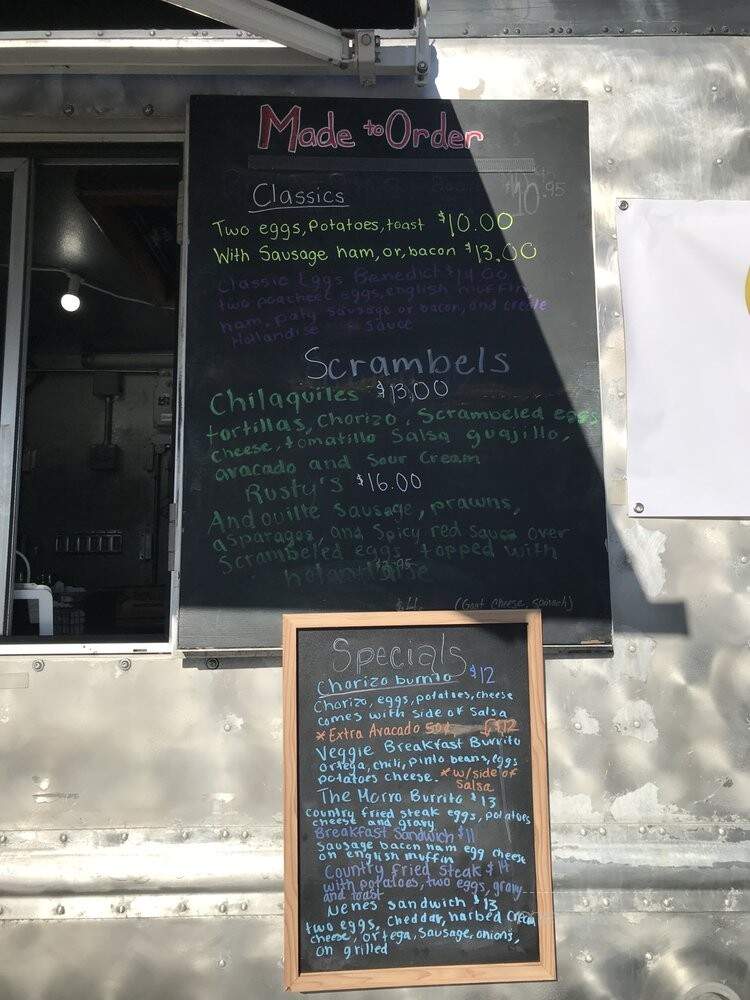 Made to Order
10.95
Classics
Two eggs, Potatoes, toast $10.00
With Sausage ham, or, bacon $13.00
Classic Eggs Benedict $14.00
two poached eggs, english muffin,
ham, paty sausage or bacon, and creole
Hollandise sauce
Scrambels
Chilaquiles $13.00
tortillas, Chorizo, Scrambeled eggs
cheese, tomatillo Salsa guajillo,
avacado and Sour Cream
Rusty's $16.00
Andouille Sausage, prawns,
asparagas, and Spicy red Sauce over
Scrambeled eggs topped with
holandaise
(Goat Cheese, Spinach)
Specials
Chorizo burrito $12
Chorizo, eggs, potatoes, cheese
comes with side of Salsa
* Extra Avacado 50¢ $12
Veggie Breakfast Burrito
ortega, chili, pinto beans, eggs
potatoes cheese. * w/side of
Salsa
The Morro Burrito $13
country fried steak eggs, potatoes
cheese and gravy
Breakfast Sandwich $11
Sausage bacon ham egg cheese
on english muffin
Country fried Steak $14
with potatoes, two eggs, gravy
and toast
Nenes sandwich $13
two eggs, cheddar, harbed cream
cheese, ortega, Sausage, onions,
on grilled